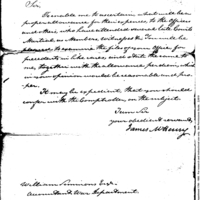 Sir
To enable me to ascertain what will be a
proper allowance for their expenses to the Officers
and others, who have attended several late Courts
Martial as Members, witnesses &c I am to be
pleased to examine the files of your office for
precedents in like cases and state the same to
me, together with the allowance per diem, which
in your opinion would be reasonable and pro-
per.
It may be expedient that you should
confer with the Comptroller on the subject
I am Sir
your obedient servant
James McHenry
William Simmons Esqr
Accountant War Department